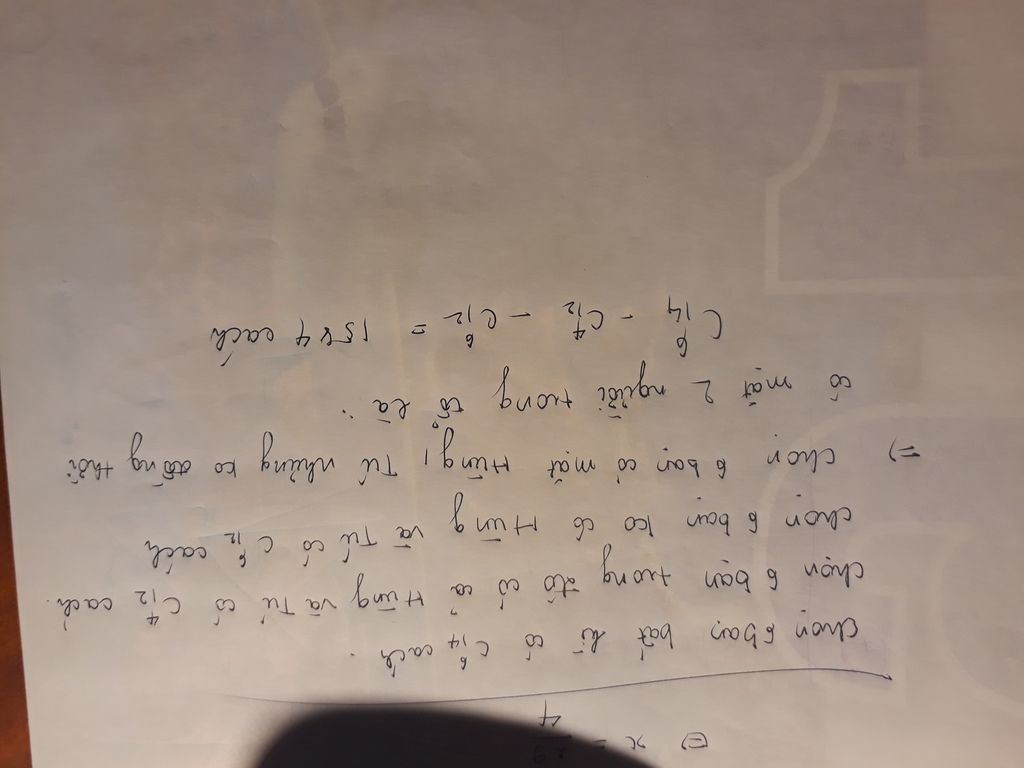 ⇔ x = 23/4
chọn 6 bạn bất kì có C₁₄⁶ cách.
chọn 6 bạn trong đó có cả Hùng và Tú có C₁₂⁴ cách.
chọn 6 bạn ko có Hùng và Tú có C₁₂⁶ cách
=) chọn 6 bạn có mặt Hùng, Tú nhưng ko đồng thời
có mặt 2 người trong tổ là:
C₁₄⁶ - C₁₂⁴ - C₁₂⁶ = 1584 cách